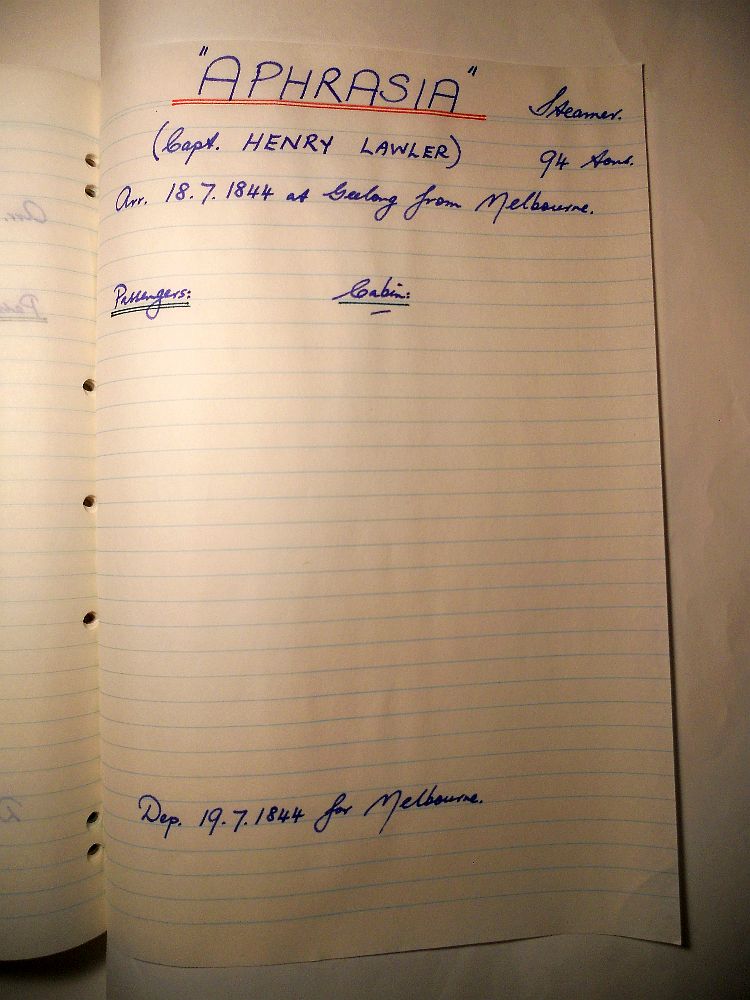 "APHRASIA"
Steamer.
(Capt. HENRY LAWLER) 94 tons.
Arr. 18.7.1844 at Geelong from Melbourne.
Passengers: Cabin:
Dep. 19.7.1844 for Melbourne.